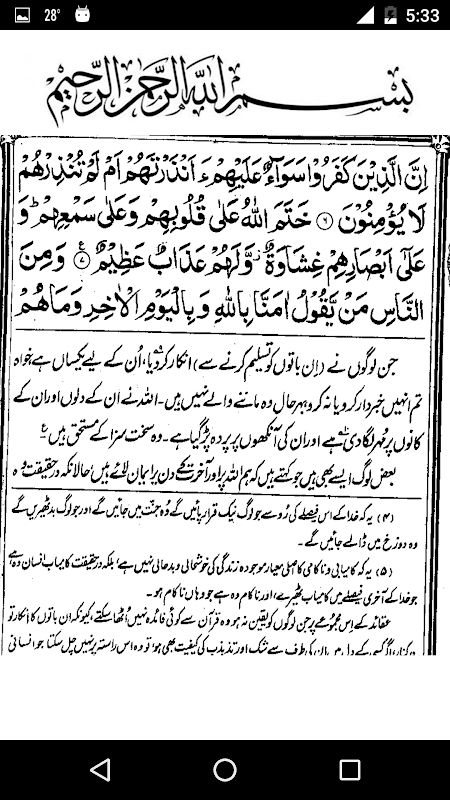 28°
5:33
بسم الله الرحمن الرحيم
اِنَّ الَّذِيْنَ كَفَرُوْا سَوَآءٌ عَلَيْهِمْ ءَ اَنْذَرْتَهُمْ اَمْ لَمْ تُنْذِرْهُمْ
لَا يُؤْمِنُوْنَ ۶ خَتَمَ اللّٰهُ عَلٰى قُلُوْبِهِمْ وَعَلٰى سَمْعِهِمْ ؕ وَ
عَلٰٓى اَبْصَارِهِمْ غِشَاوَةٌ ز وَّلَهُمْ عَذَابٌ عَظِيْمٌ ۷ ع وَمِنَ
النَّاسِ مَنْ يَّقُوْلُ اٰمَنَّا بِاللّٰهِ وَ بِالْيَوْمِ الْاٰخِرِ وَمَا هُمْ
جن لوگوں نے (ان باتوں کو تسلیم کرنے سے) انکار کر دیا، اُن کے لیے یکساں ہے خواہ
تم انہیں خبردار کرو یا نہ کرو بہرحال وہ ماننے والے نہیں ہیں۔ اللہ نے ان کے دلوں اور ان کے
کانوں پر مُہر لگا دی ہے اور ان کی آنکھوں پر پردہ پڑ گیا ہے۔ وہ سخت سزا کے مستحق ہیں ع
بعض لوگ ایسے بھی ہیں جو کہتے ہیں کہ ہم اللہ پر اور آخرت کے دن پر ایمان لائے ہیں، حالانکہ درحقیقت وہ
(۴) یہ کہ خدا کے اس فیصلے کی رُو سے جو لوگ نیک قرار پائیں گے وہ جنت میں جائیں گے اور جو لوگ بد ٹھیریں گے
وہ دوزخ میں ڈالے جائیں گے۔
(۵) یہ کہ کامیابی و ناکامی کا اصلی معیار موجودہ زندگی کی خوشحالی و بدحالی نہیں ہے، بلکہ درحقیقت کامیاب انسان وہ ہے
جو خدا کے آخری فیصلے میں کامیاب ٹھیرے، اور ناکام وہ ہے جو وہاں ناکام ہو۔
عقائد کے اس مجموعے پر جن لوگوں کو یقین نہ ہو وہ قرآن سے کوئی فائدہ نہیں اُٹھا سکتے، کیونکہ ان باتوں کا انکار تو
درکنار، اگر کسی کے دل میں ان کی طرف سے شک اور تذبذب کی کیفیت بھی ہو، تو وہ اس راستہ پر نہیں چل سکتا جو انسانی